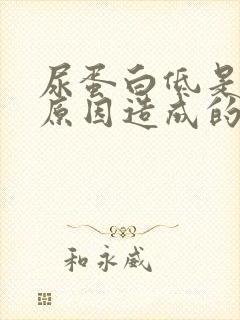 尿蛋白低是
原因造成的
和永威